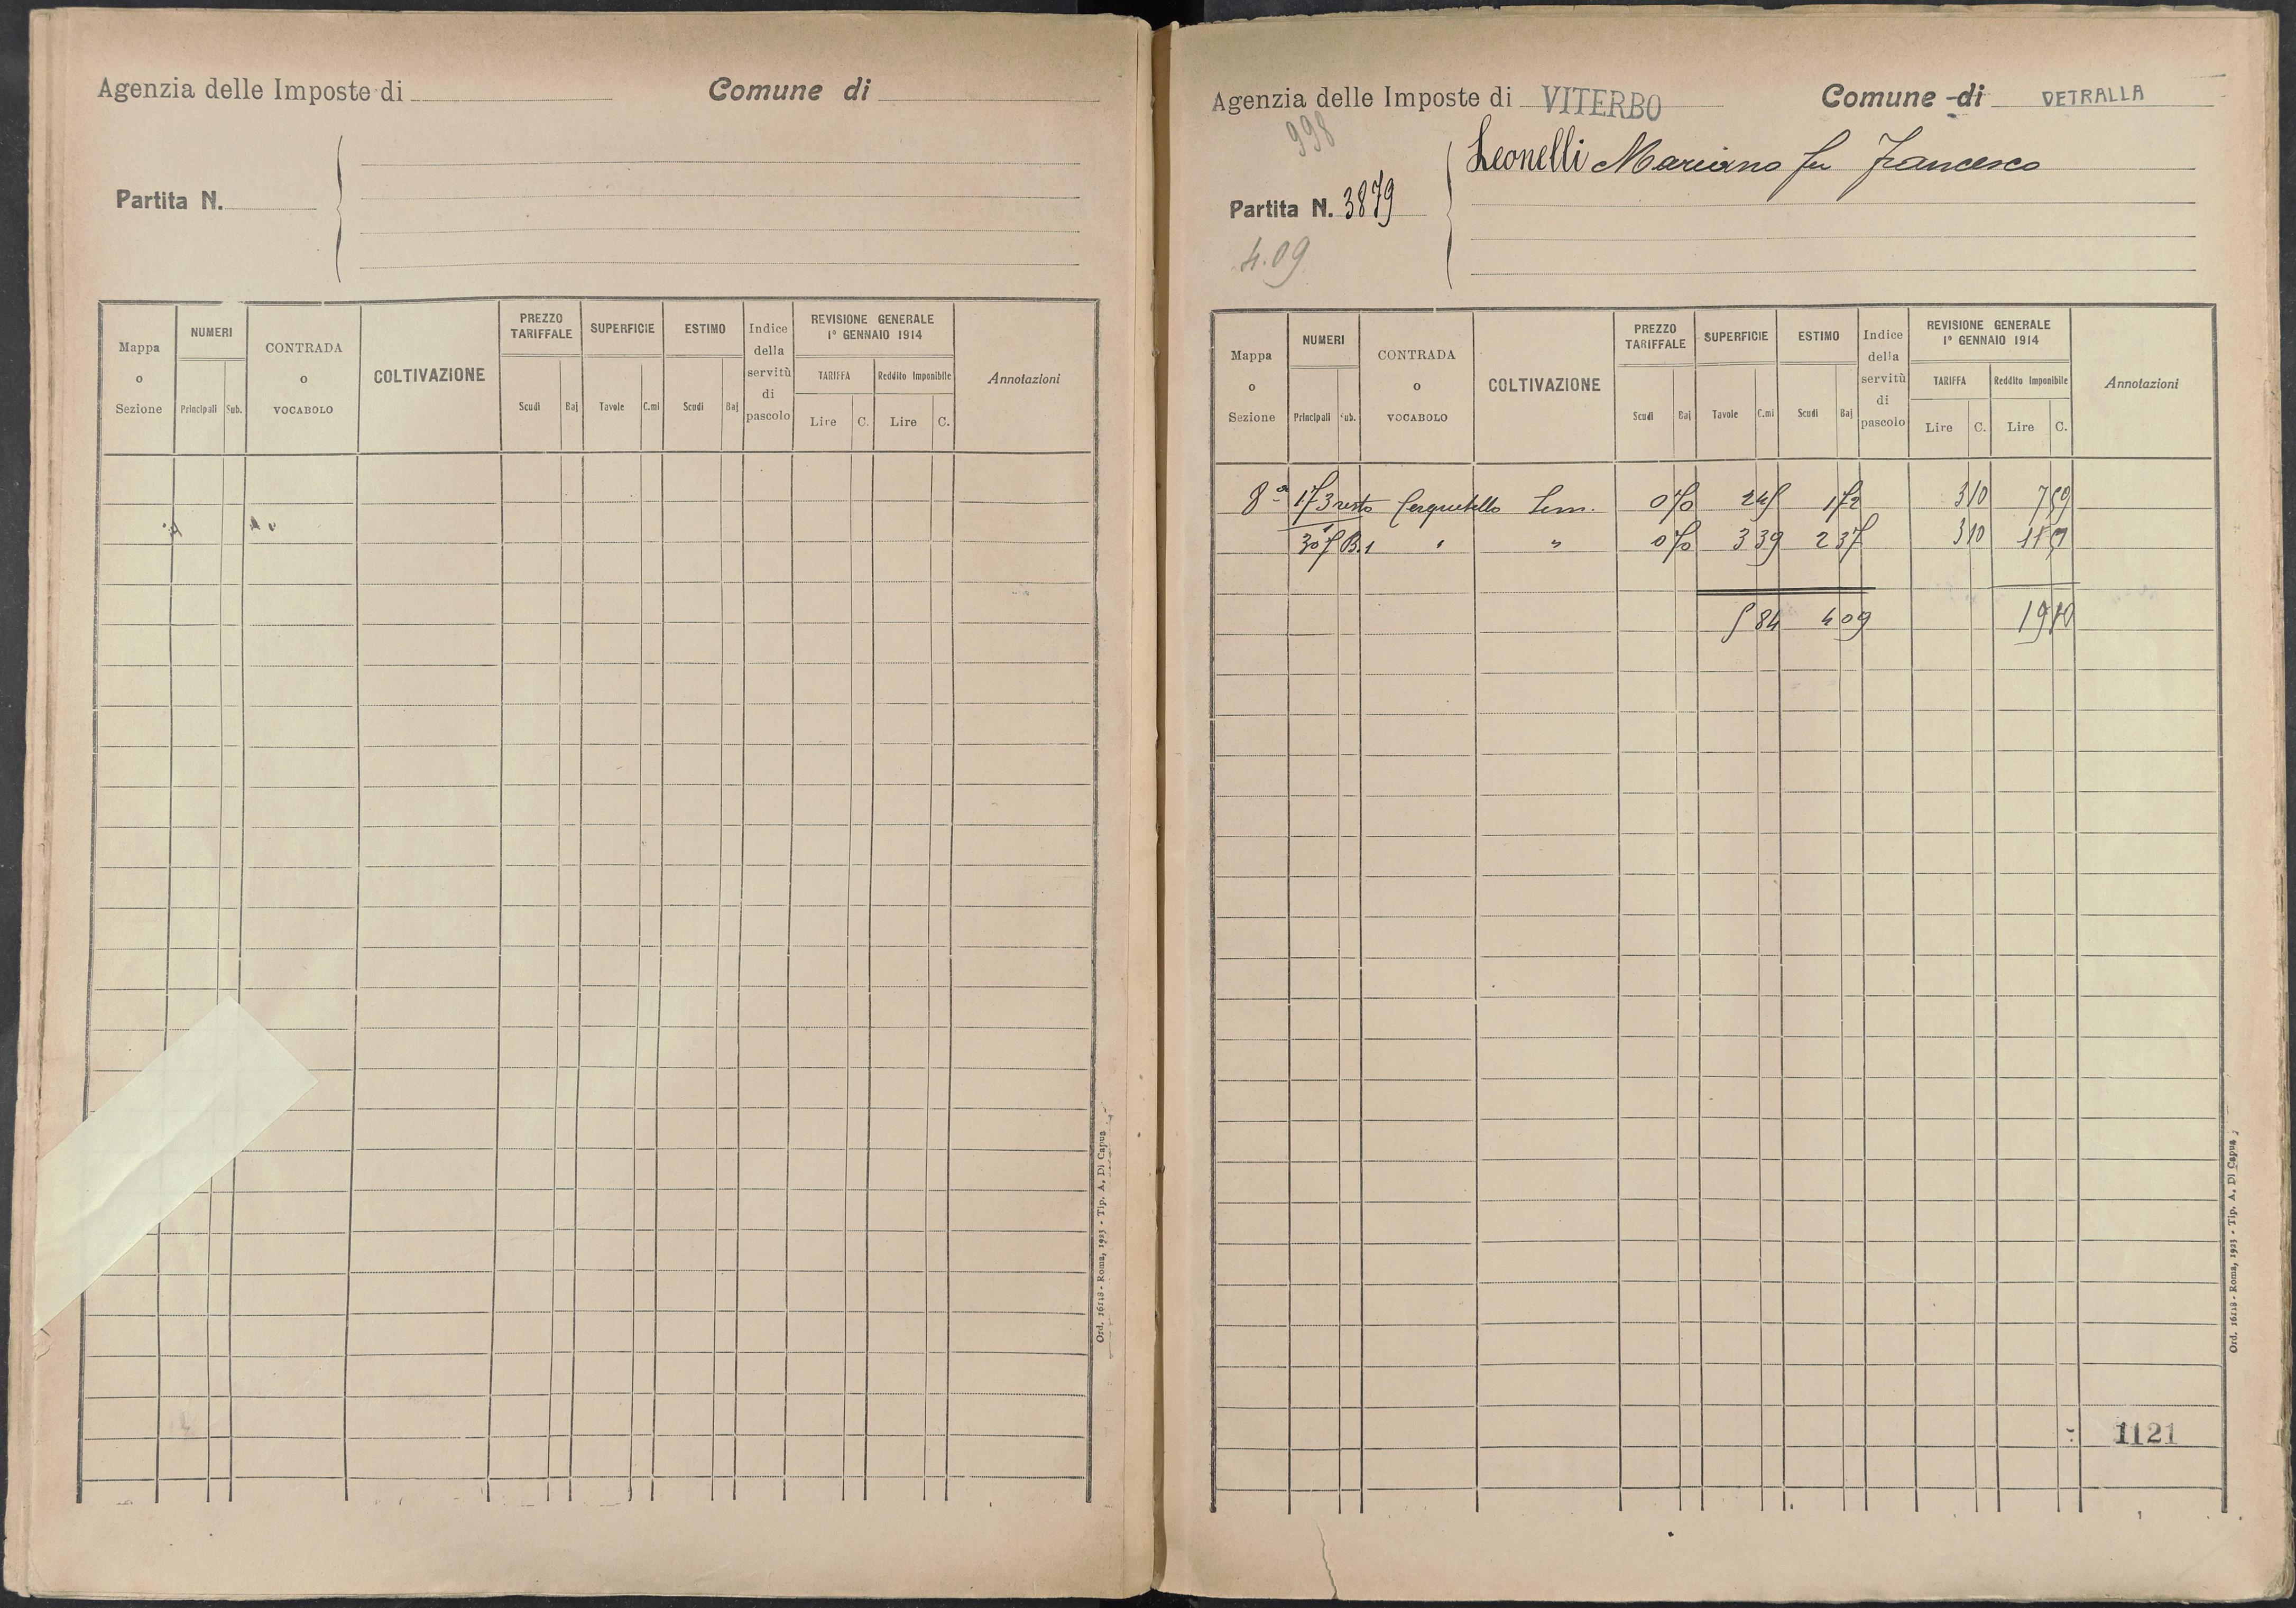 Agenzia delle Imposte di
Comune di
Partita N.
Mappa o Sezione
NUMERI
Principali Sub.
CONTRADA o VOCABOLO
COLTIVAZIONE
PREZZO TARIFFALE
Scudi Baj
SUPERFICIE
Tavole C.mi
ESTIMO
Scudi Baj
Indice della servitù di pascolo
REVISIONE GENERALE
1° GENNAIO 1914
TARIFFA Reddito Imponibile
Lire C. Lire C.
Annotazioni
Ord. 16118 - Roma, 1923 - Tip. A. Di Capua
Agenzia delle Imposte di VITERBO
Comune di VETRALLA
998
Leonelli Mariano fu Francesco
Partita N. 3879
4.09
Mappa o Sezione
NUMERI
Principali Sub.
CONTRADA o VOCABOLO
COLTIVAZIONE
PREZZO TARIFFALE
Scudi Baj
SUPERFICIE
Tavole C.mi
ESTIMO
Scudi Baj
Indice della servitù di pascolo
REVISIONE GENERALE
1° GENNAIO 1914
TARIFFA Reddito Imponibile
Lire C. Lire C.
Annotazioni
8a 173 resto Cerquetello Sem. 0 70 2 45 1 72 3 10 7 59
307 B.1 " " 0 70 3 39 2 37 3 10
5 84 4 09
1121
Ord. 16118 - Roma, 1923 - Tip. A. Di Capua